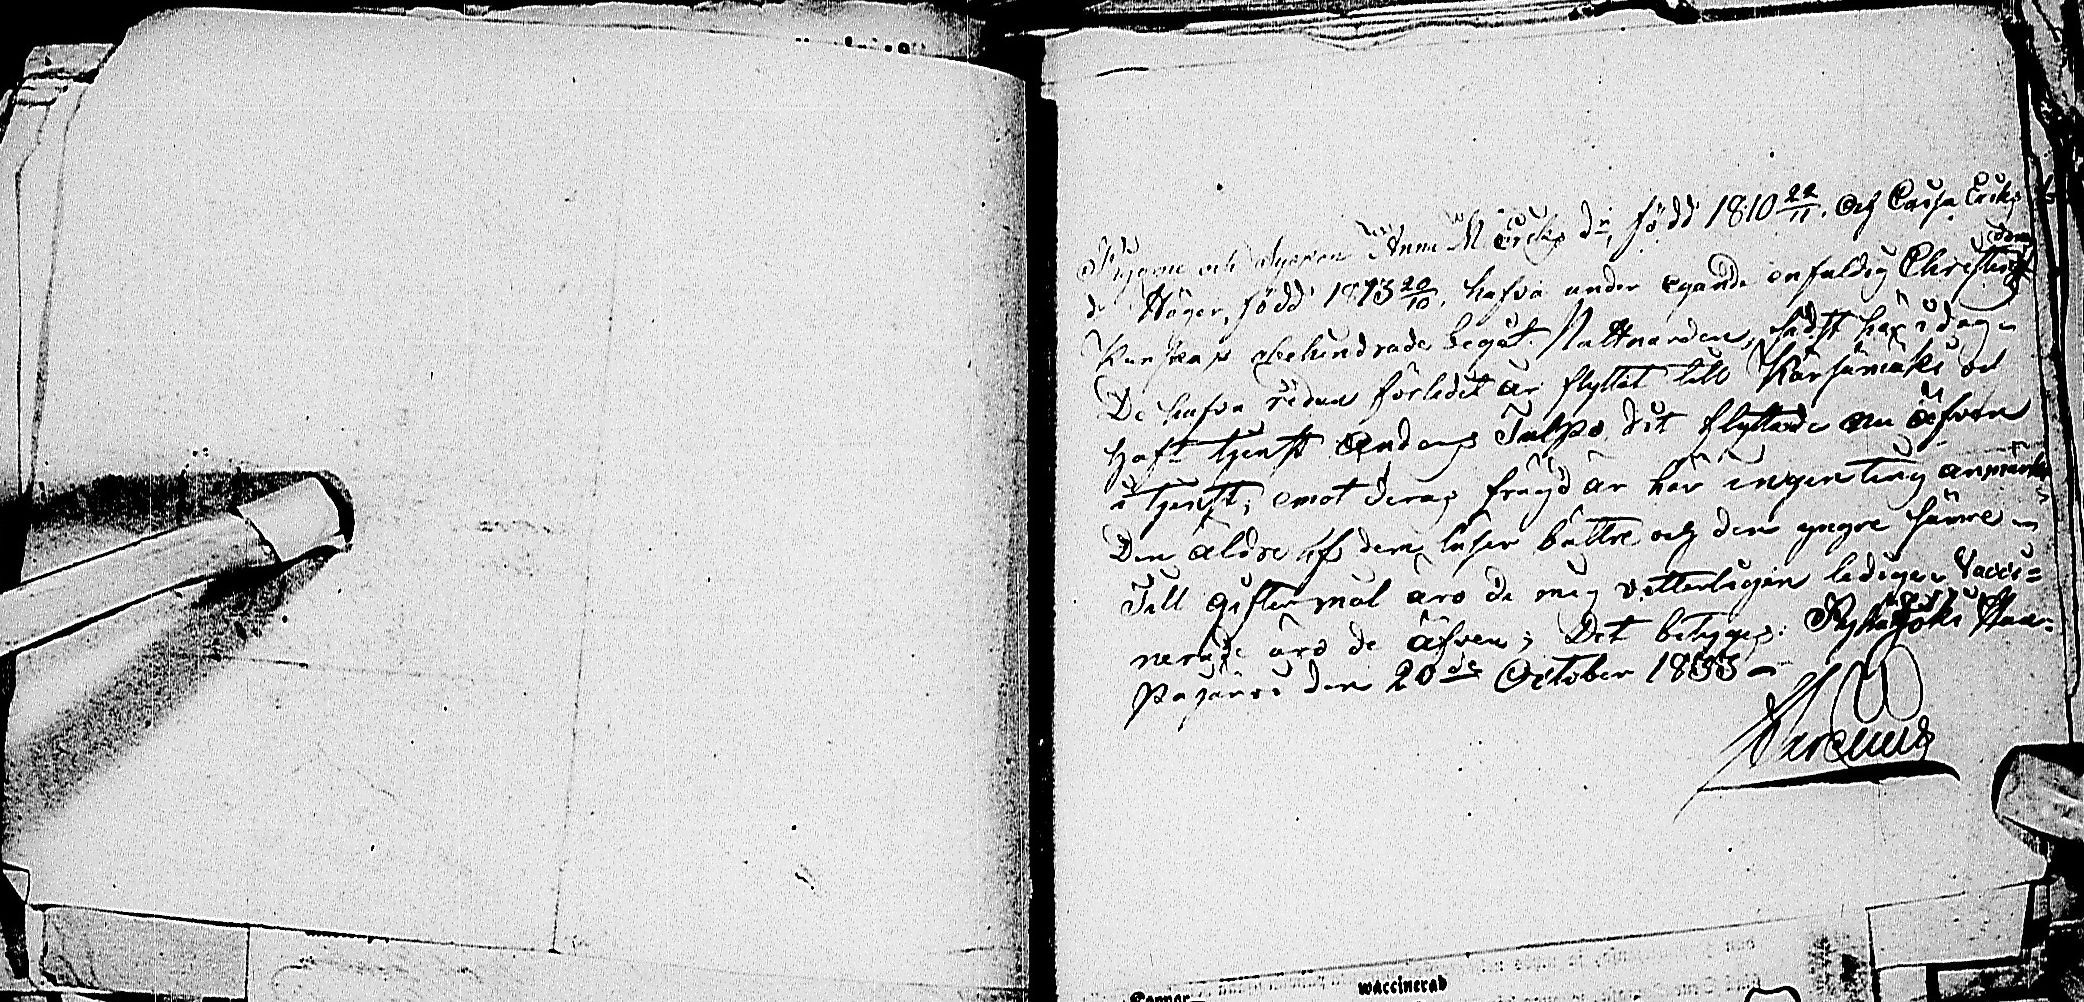 Pigorne och Systrar Anna M. Eriks dr, född 1810 22/11. och Caisa Eriks
dr Höger, född 1813 20/10. hafva under egande enfaldig Christendoms
Kunskap obehindrade begåt Nattvarden, sidst här i dag
De hafva redan förledit år flyttat till Kärsämäki och
haft tjenst Anders dit flyttade nu äfven
i tjenst; emot deras frägd är här ingenting anmärkt
Den äldre af dem läser bättre och den yngre sämre
Till giftermål äro de mig vetterligen lediga. Vacci=
nerade äro de äfven; Det betygas. Pyhäjoki Haa=
pajärvi den 20de October 1833
waccinerad